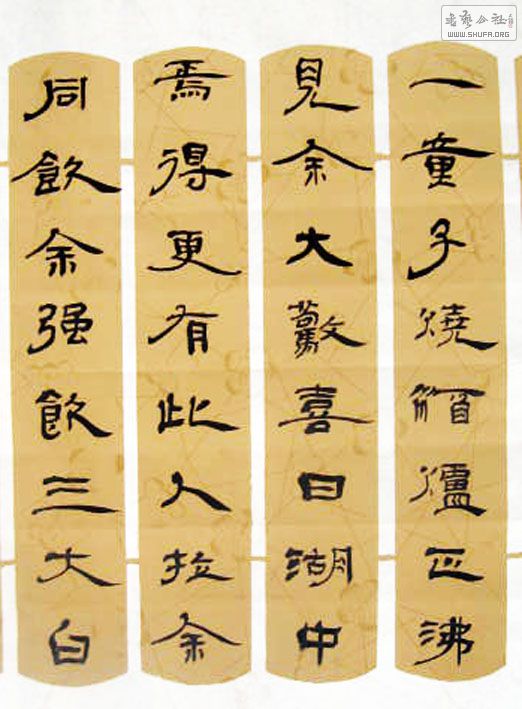 書藝公社
WWW.SHUFA.ORG
一童子燒爐正沸
見余大驚喜曰湖中
焉得更有此人拉余
同飲余强飲三大白